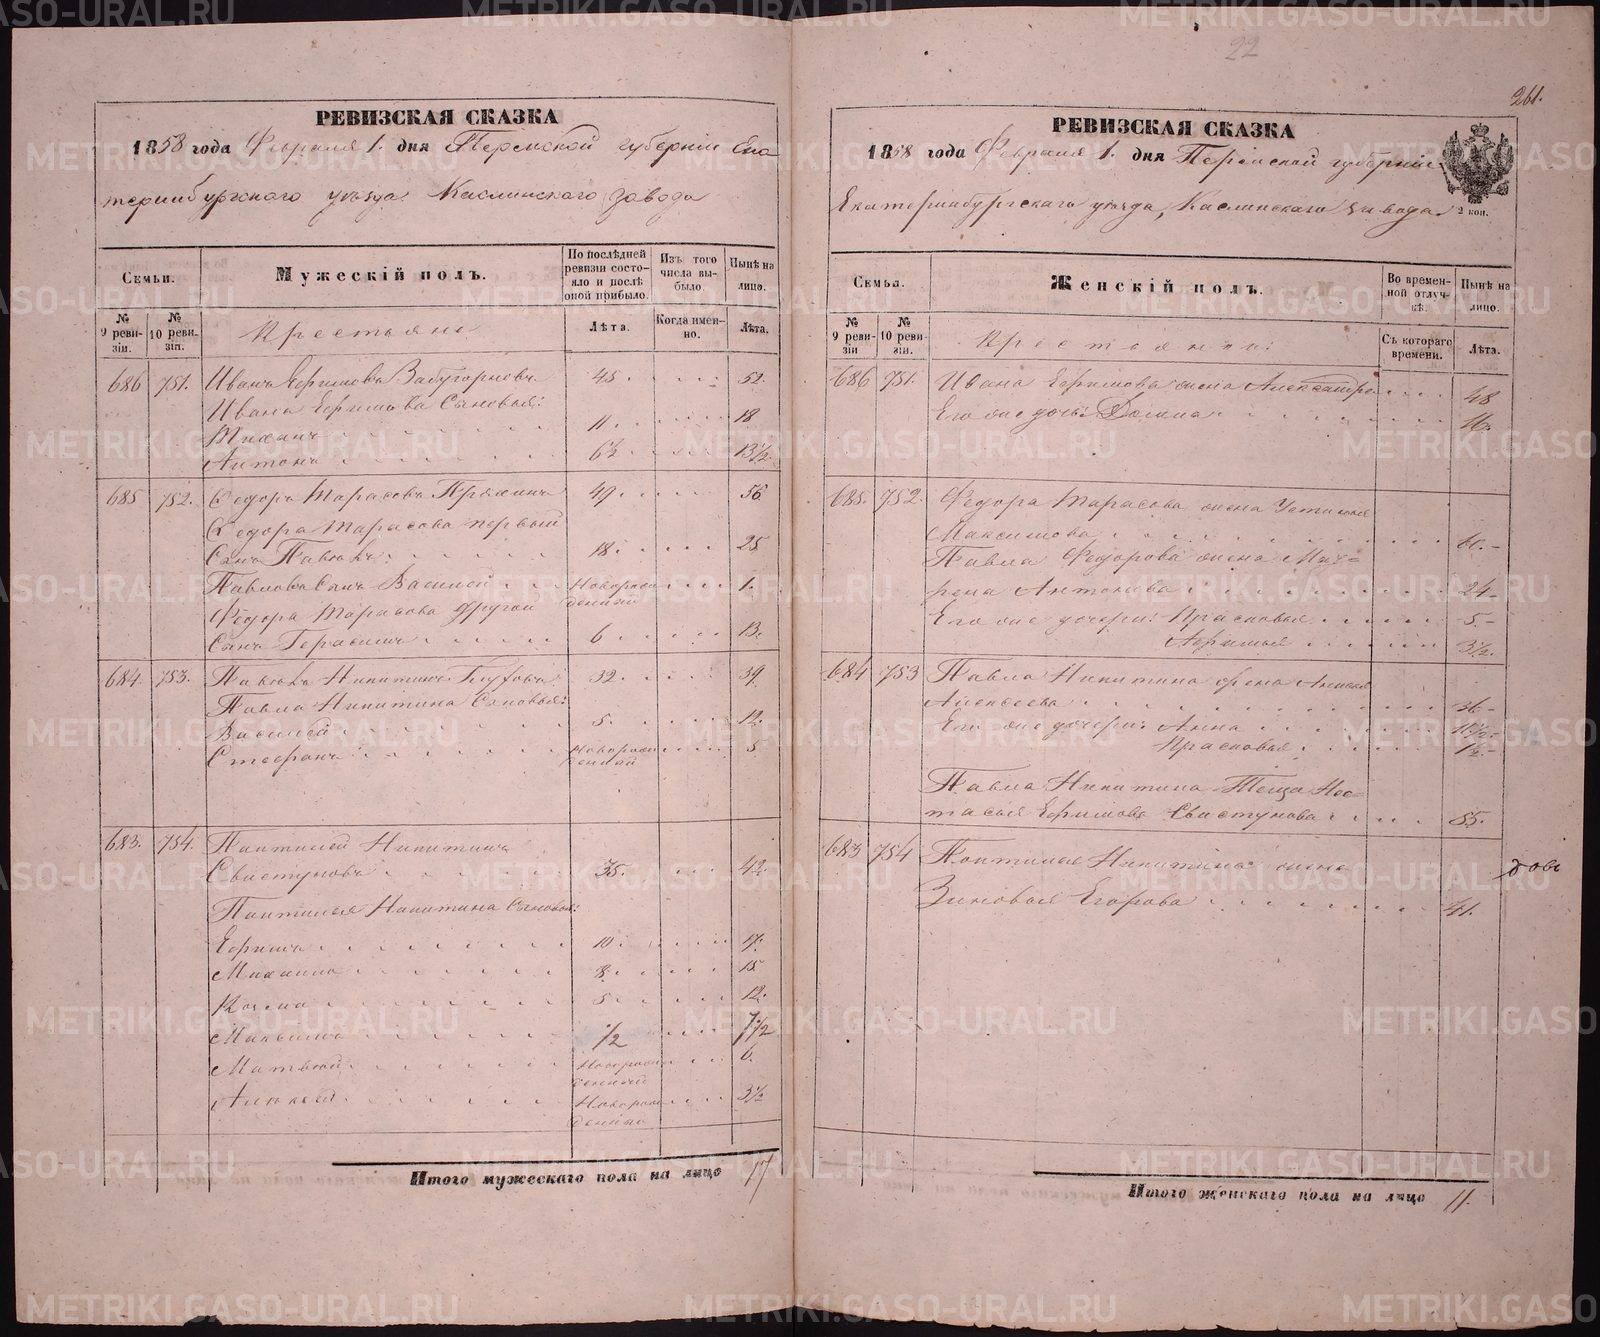 22
261.
РЕВИЗСКАЯ СКАЗКА
1858 года Февраля 1. дня Пермской губернiи Ека
теринбургского уѣзда Каслинского завода
Семьи.
Мужескiй полъ.
По послѣдней ревизiи состояло и послѣ оной прибыло.
Изъ того числа выбыло.
Нынѣ на лицо.
№ 9 ревизiи.
№ 10 ревизiи.
Крестьяне
Лѣта.
Когда именно.
Лѣта.
686 751. Иванъ Ефимовъ Забугорновъ 45 52.
Ивана Ефимова Сыновья:
11. 18
Антонъ 6½ 13½
685 752. Федоръ Тарасовъ Пряхинъ 49 56
Федора Тарасова первый
Сынъ Павелъ 18 25
Павловъ Сынъ Василей Новорожденный 1.
Федора Тарасова другой
Сынъ Герасимъ 6 13.
684. 753. Павелъ Никитинъ 32. 39
Павла Никитина Сыновья:
Василей 5. 12.
Стефанъ Новорожденный 5
683. 754. Пантилей Никитинъ
Свистуновъ 35. 42.
Пантилея Никитина Сыновья:
Ефимъ 10. 17.
Михаило 8. 15
Козьма 5 12.
Максимъ ½ 7½
Матвей Новорожденный 6.
Алексей Новорожденный 3½
Итого мужескаго пола на лицо 17
РЕВИЗСКАЯ СКАЗКА
1858 года Февраля 1. дня Пермской губернiи
Екатеринбургскаго уѣзда, Каслинскаго завода.
2 коп.
Семьи.
Женскiй полъ.
Во временной отлучкѣ.
Нынѣ на лицо.
№ 9 ревизiи
№ 10 ревизiи.
Крестьянки:
Съ котораго времени.
Лѣта.
686 751. Ивана Ефимова жена Александра 48
Его же дочь: Домна 16.
685. 752. Федора Тарасова жена Устинья
Максимова 60.
Павла Федорова жена Мат-
рена Антонова 24
Его же дочери: Прасковья 5.
Афимья 3½.
684 753 Павла Никитина жена Анисья
Алексеева 36
Его же дочери: Анна
Прасковья 1½.
Павла Никитина Теща Нас-
тасья Ефимова Свистунова 55.
683 754 Пантилея Никитина жена
Зиновья Егорова 41.
Итого женскаго пола на лицо 11.
METRIKI.GASO-URAL.RU